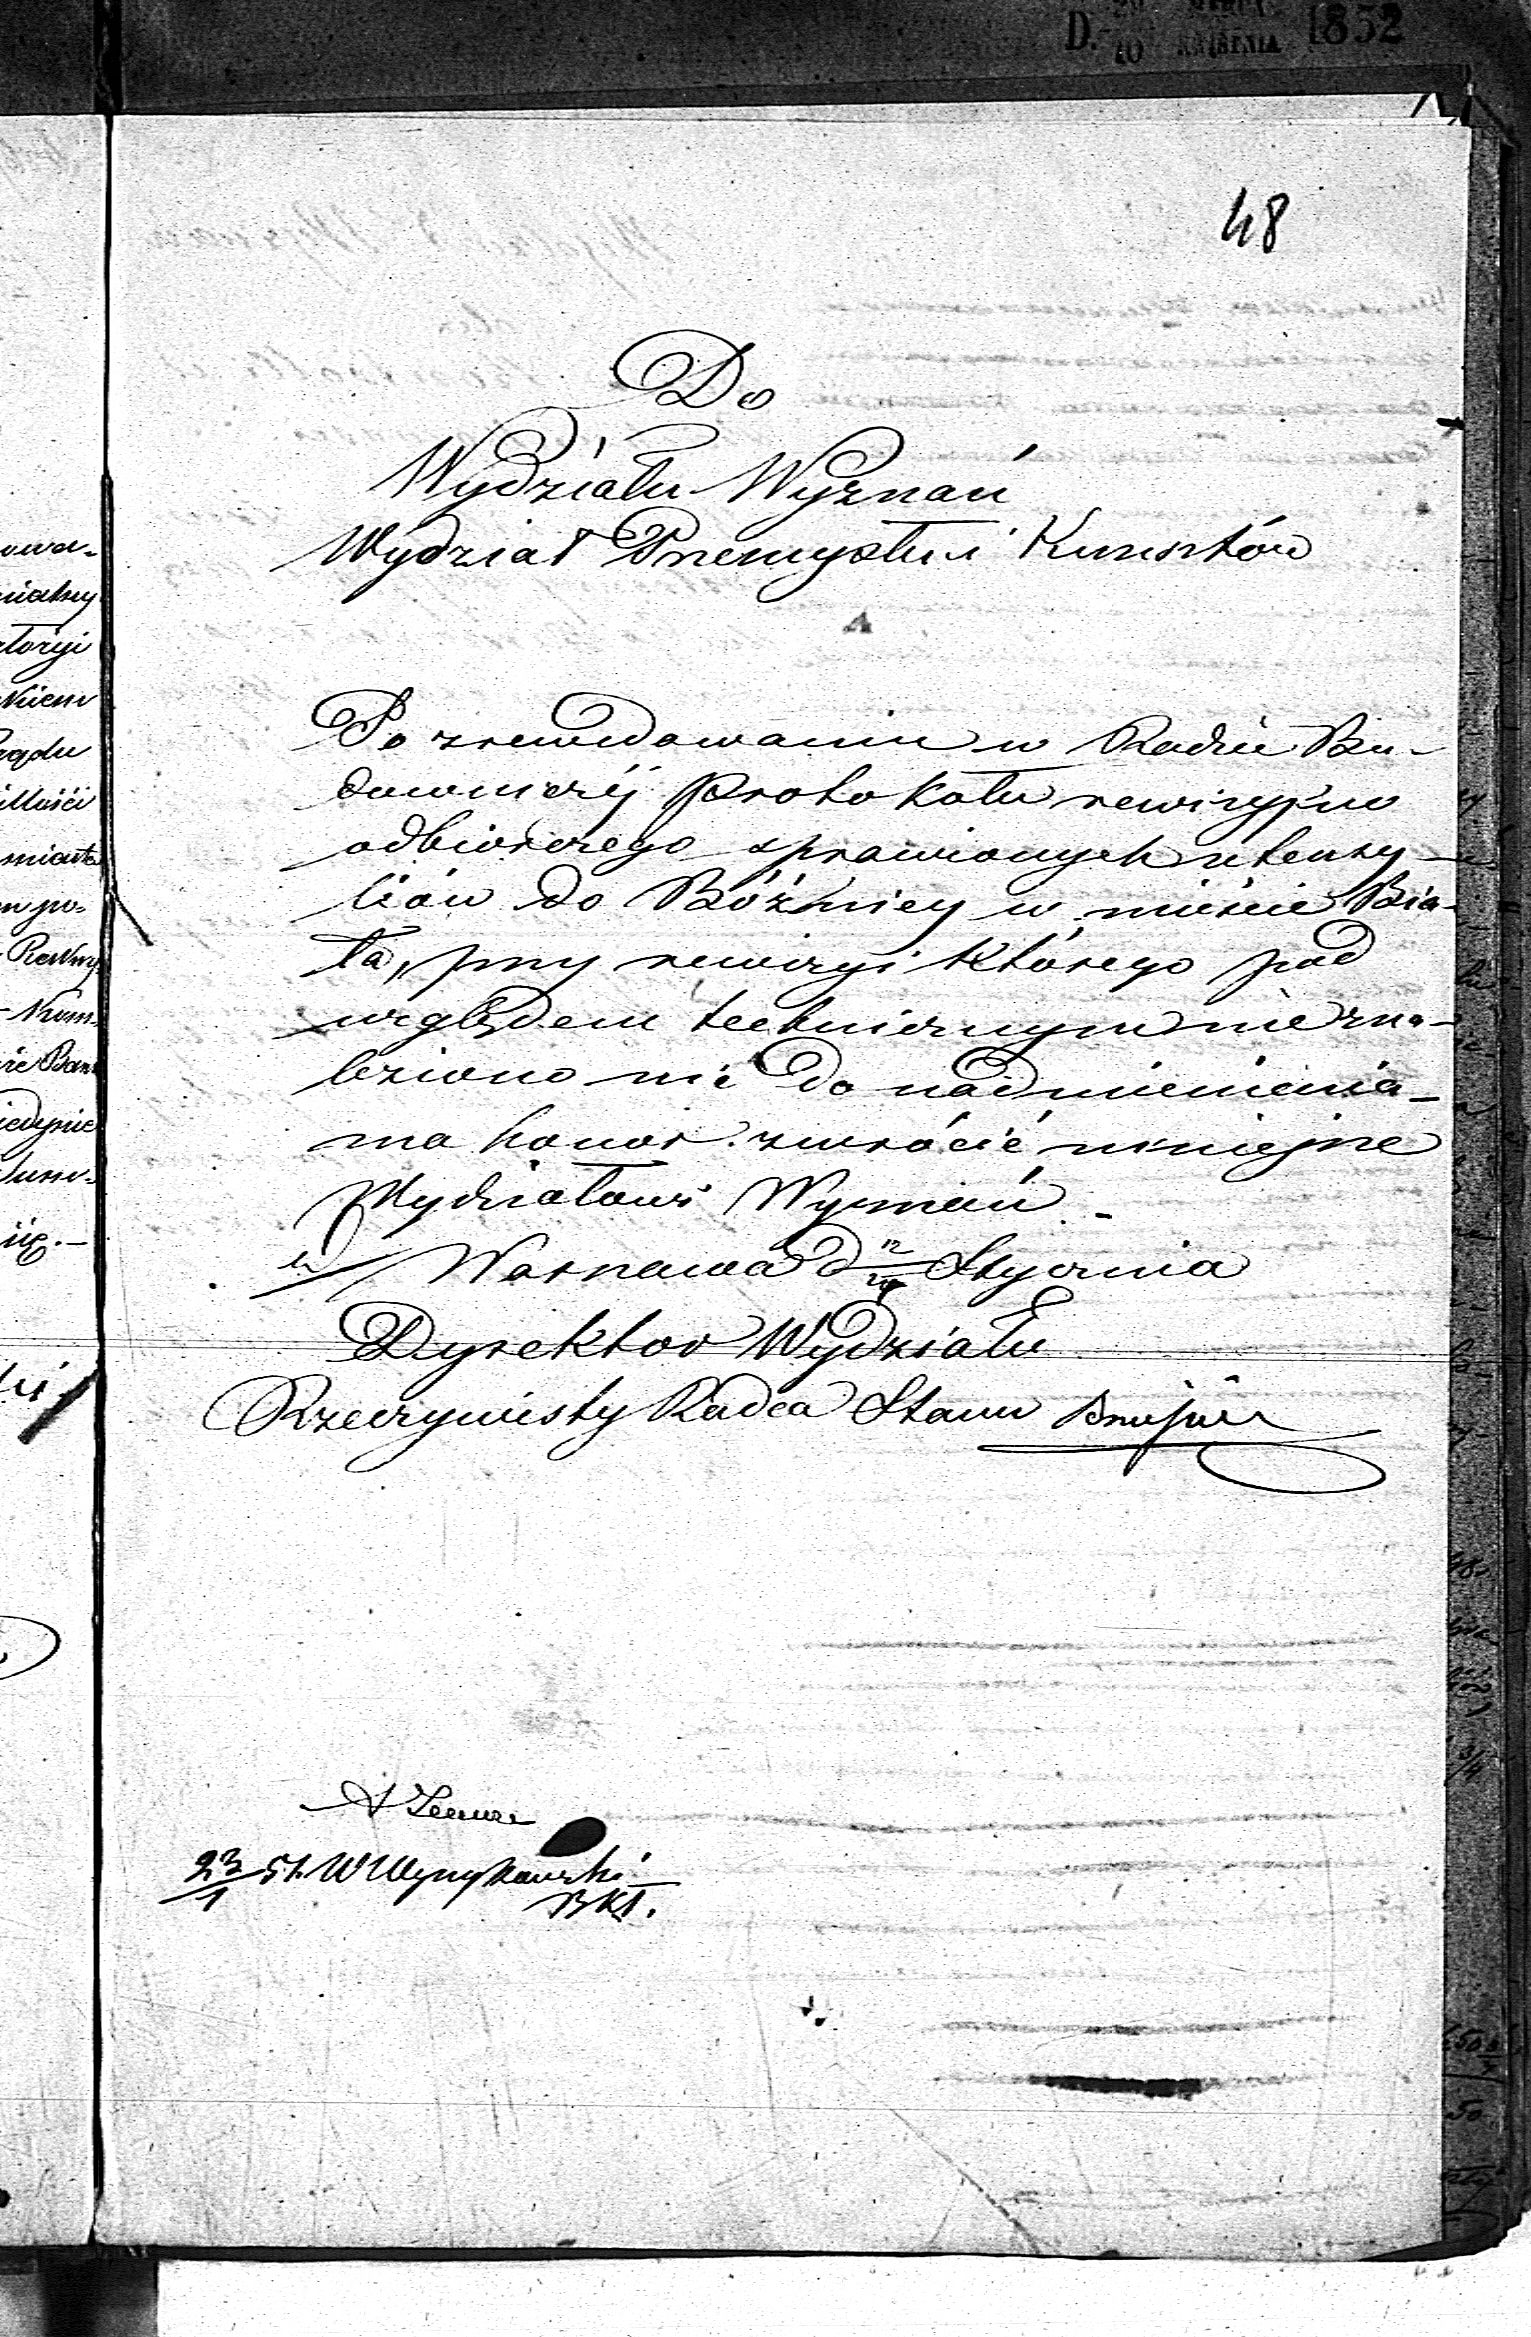 D. 29 MARCA
10 KWIETNIA 1852
48
Do
Wydziału Wyznań
Wydział Przemysłu i Kunsztów
Po zrewidowaniu w Radzie Bu-
downiczéj protokółu rewizyjno
odbiorczego sprawionych utensy-
liów do Bóżnicy w mieście Bia-
ła, przy rewizyi którego pod
względem technicznym nie zna-
leziono nic do nadmienienia -
ma honor zwrócić niniejsze
Wydziałowi Wyznań. -
w Warszawa d 12/24 Stycznia
Dyrektor Wydziału
Rzeczywisty Radca Stanu
23/1 51.
owa-
toryi
kiem
ządu
miasta
po-
Kom-
się. -